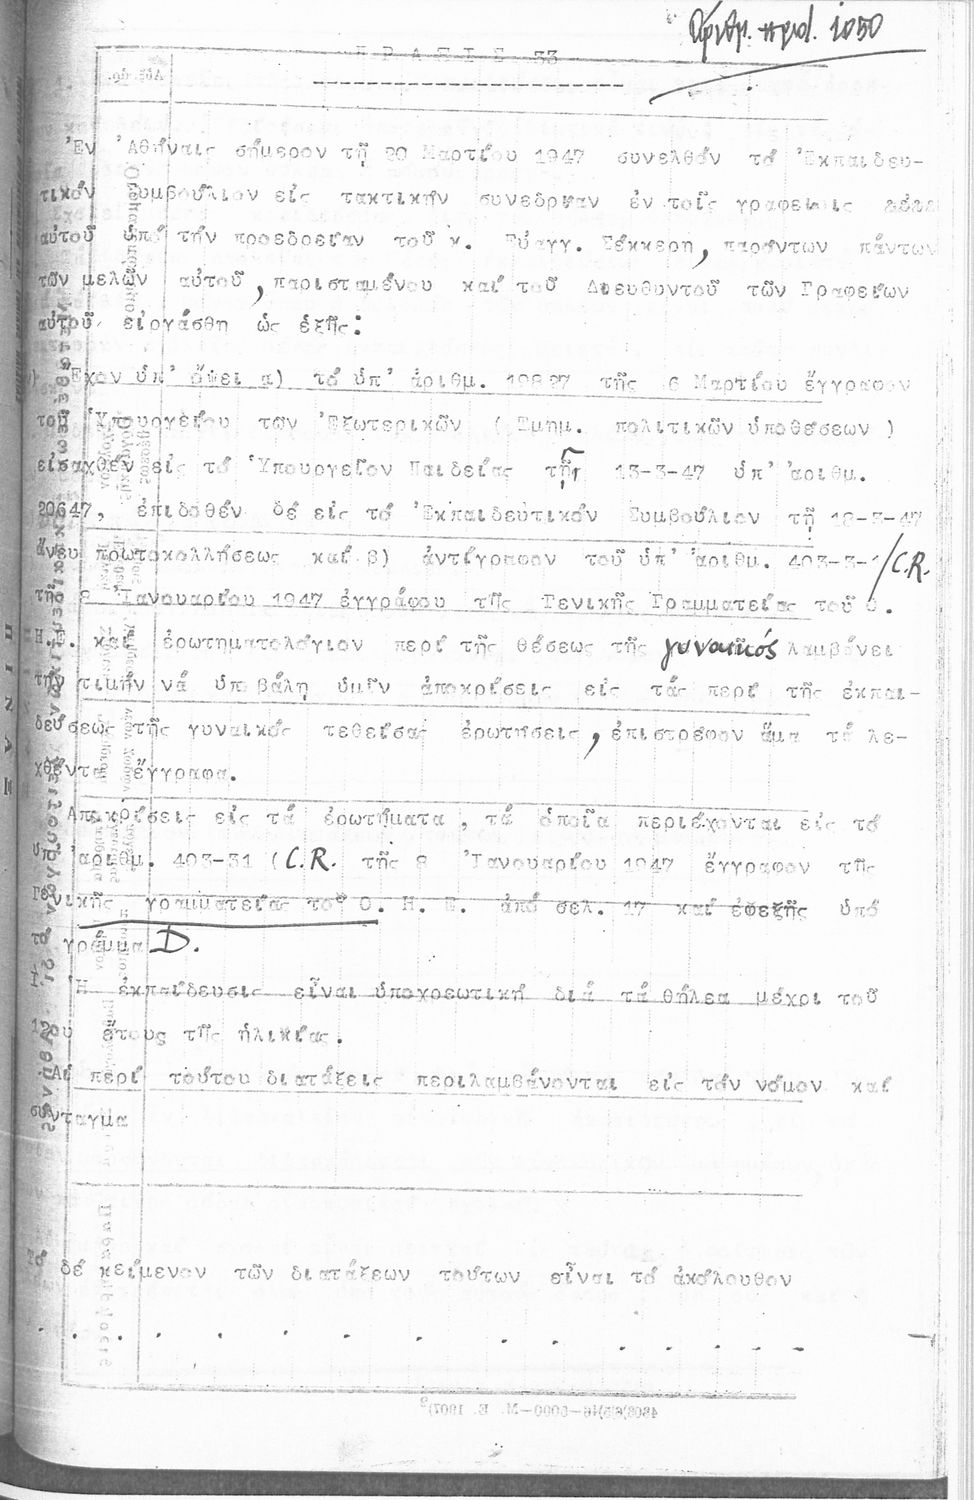 Ἀριθμ. πρωτ. 1050
ΠΡΑΞΙΣ 33
Ἐν Ἀθήναις σήμερον τῇ 20 Μαρτίου 1947 συνελθόν τό Ἐκπαιδευ-
τικόν Συμβούλιον εἰς τακτικήν συνεδρίαν ἐν τοῖς γραφείοις
αὐτοῦ ὑπό τήν προεδρείαν τοῦ κ. Εὐαγγ. Σέκκερη, παρόντων πάντων
τῶν μελῶν αὐτοῦ, παρισταμένου καί τοῦ Διευθυντοῦ τῶν Γραφείων
αὐτοῦ εἰργάσθη ὡς ἑξῆς:
Ἔχον ὑπ' ὄψει α) τό ὑπ' ἀριθμ. 19827 τῆς 6 Μαρτίου ἔγγραφον
τοῦ Ὑπουργείου τῶν Ἐξωτερικῶν (Τμημ. πολιτικῶν ὑποθέσεων)
εἰσαχθέν εἰς τό Ὑπουργεῖον Παιδείας τῇ 13-3-47 ὑπ' ἀριθμ.
20647, ἐπιδοθέν δέ εἰς τό Ἐκπαιδευτικόν Συμβούλιον τῇ 18-3-47
ἄνευ πρωτοκολλήσεως καί β) ἀντίγραφον τοῦ ὑπ' ἀριθμ. 403-3-1/C.R.
τῆς 8 Ἰανουαρίου 1947 ἐγγράφου τῆς Γενικῆς Γραμματείας τοῦ Ο.
Η.Ε. καί ἐρωτηματολόγιον περί τῆς θέσεως τῆς γυναικός λαμβάνει
τήν τιμήν νά ὑποβάλη ὑμῖν ἀποκρίσεις εἰς τάς περί τῆς ἐκπαι-
δεύσεως τῆς γυναικός τεθείσας ἐρωτήσεις, ἐπιστρέφον ἅμα τά λε-
χθέντα ἔγγραφα.
Ἀποκρίσεις εἰς τά ἐρωτήματα, τά ὁποῖα περιέχονται εἰς τό
ὑπ' ἀριθμ. 403-31 (C.R. τῆς 8 Ἰανουαρίου 1947 ἔγγραφον τῆς
Γενικῆς γραμματείας τοῦ Ο. Η. Ε. ἀπό σελ. 17 καί ἐφεξῆς ὑπό
τό γράμμα D.
1. Ἡ ἐκπαίδευσις εἶναι ὑποχρεωτική διά τά θήλεα μέχρι τοῦ
12ου ἔτους τῆς ἡλικίας.
Αἱ περί τούτου διατάξεις περιλαμβάνονται εἰς τόν νόμον καί
σύνταγμα
Τό δέ κείμενον τῶν διατάξεων τούτων εἶναι τό ἀκόλουθον
. . . . . . . . . . . . . .